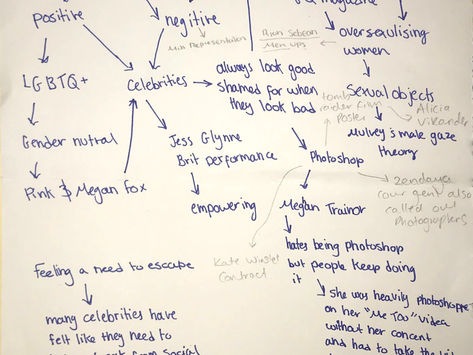 positive
negitive
magazine
Miss Representation
Rion Sebean
Men ups
oversexulising
women
LGBTQ+
Celebrities
always look good
shamed for when
they look bad
Sexual objects
tomb
raider film
Poster
Alicia
Vikander
Mulvey's male gaze
theory
Gender nutral
Jess Glynne
Brit performance
Photoshop
Pink & Megan Fox
zendaya
cover gent also
called out
Photographers
empowering
Megan Trainor
Kate Winslet
Contract
hates being Photoshop
but people keep doing
it
Feeling a need to escape
she was heavily Photoshoppe
on her "Me Too" Video
without her concent
and had to take the
many celebrities have
felt like they need to
from Social